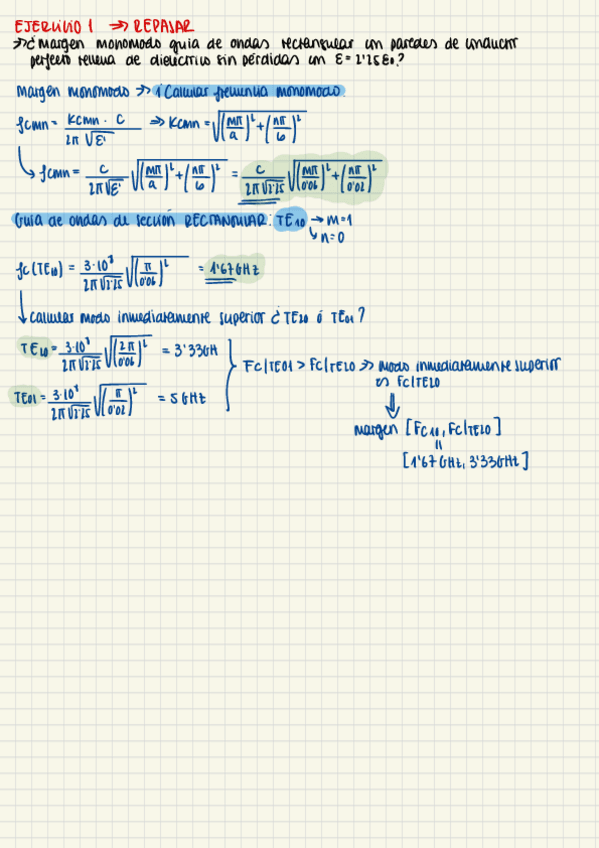 EJERCICIO 1 ⇒ REPASAR
→ ¿Margen monomodo guia de ondas rectangular con paredes de conductor
perfecto rellena de dielectrico sin pérdidas con ε = 2'25ε₀?
Margen monomodo → 1 Calcular frecuencia monomodo:
fcmn = Kcmn · c / 2π √ε' ⇒ Kcmn = √((mπ/a)² + (nπ/b)²)
↳ fcmn = c / 2π√ε' √((mπ/a)² + (nπ/b)²) = c / 2π√2'25 √((mπ/0'06)² + (nπ/0'02)²)
Guia de ondas de sección RECTANGULAR: TE₁₀ → m=1
↳ n=0
fc(TE₁₀) = 3·10⁸ / 2π√2'25 √((π/0'06)²) = 1'67GHz
↓ Calcular modo inmediatamente superior ¿TE20 ó TE01?
TE₂₀ = 3·10⁸ / 2π√2'25 √((2π/0'06)²) = 3'33GH
Fc|TE01 > Fc|TE20 ⇒ modo inmediatamente superior
es Fc|TE20
TE01 = 3·10⁸ / 2π√2'25 √((π/0'02)²) = 5GHz
⇓
margen [Fc₁₀, Fc|TE20]
=
[1'67GHz, 3'33GHz]